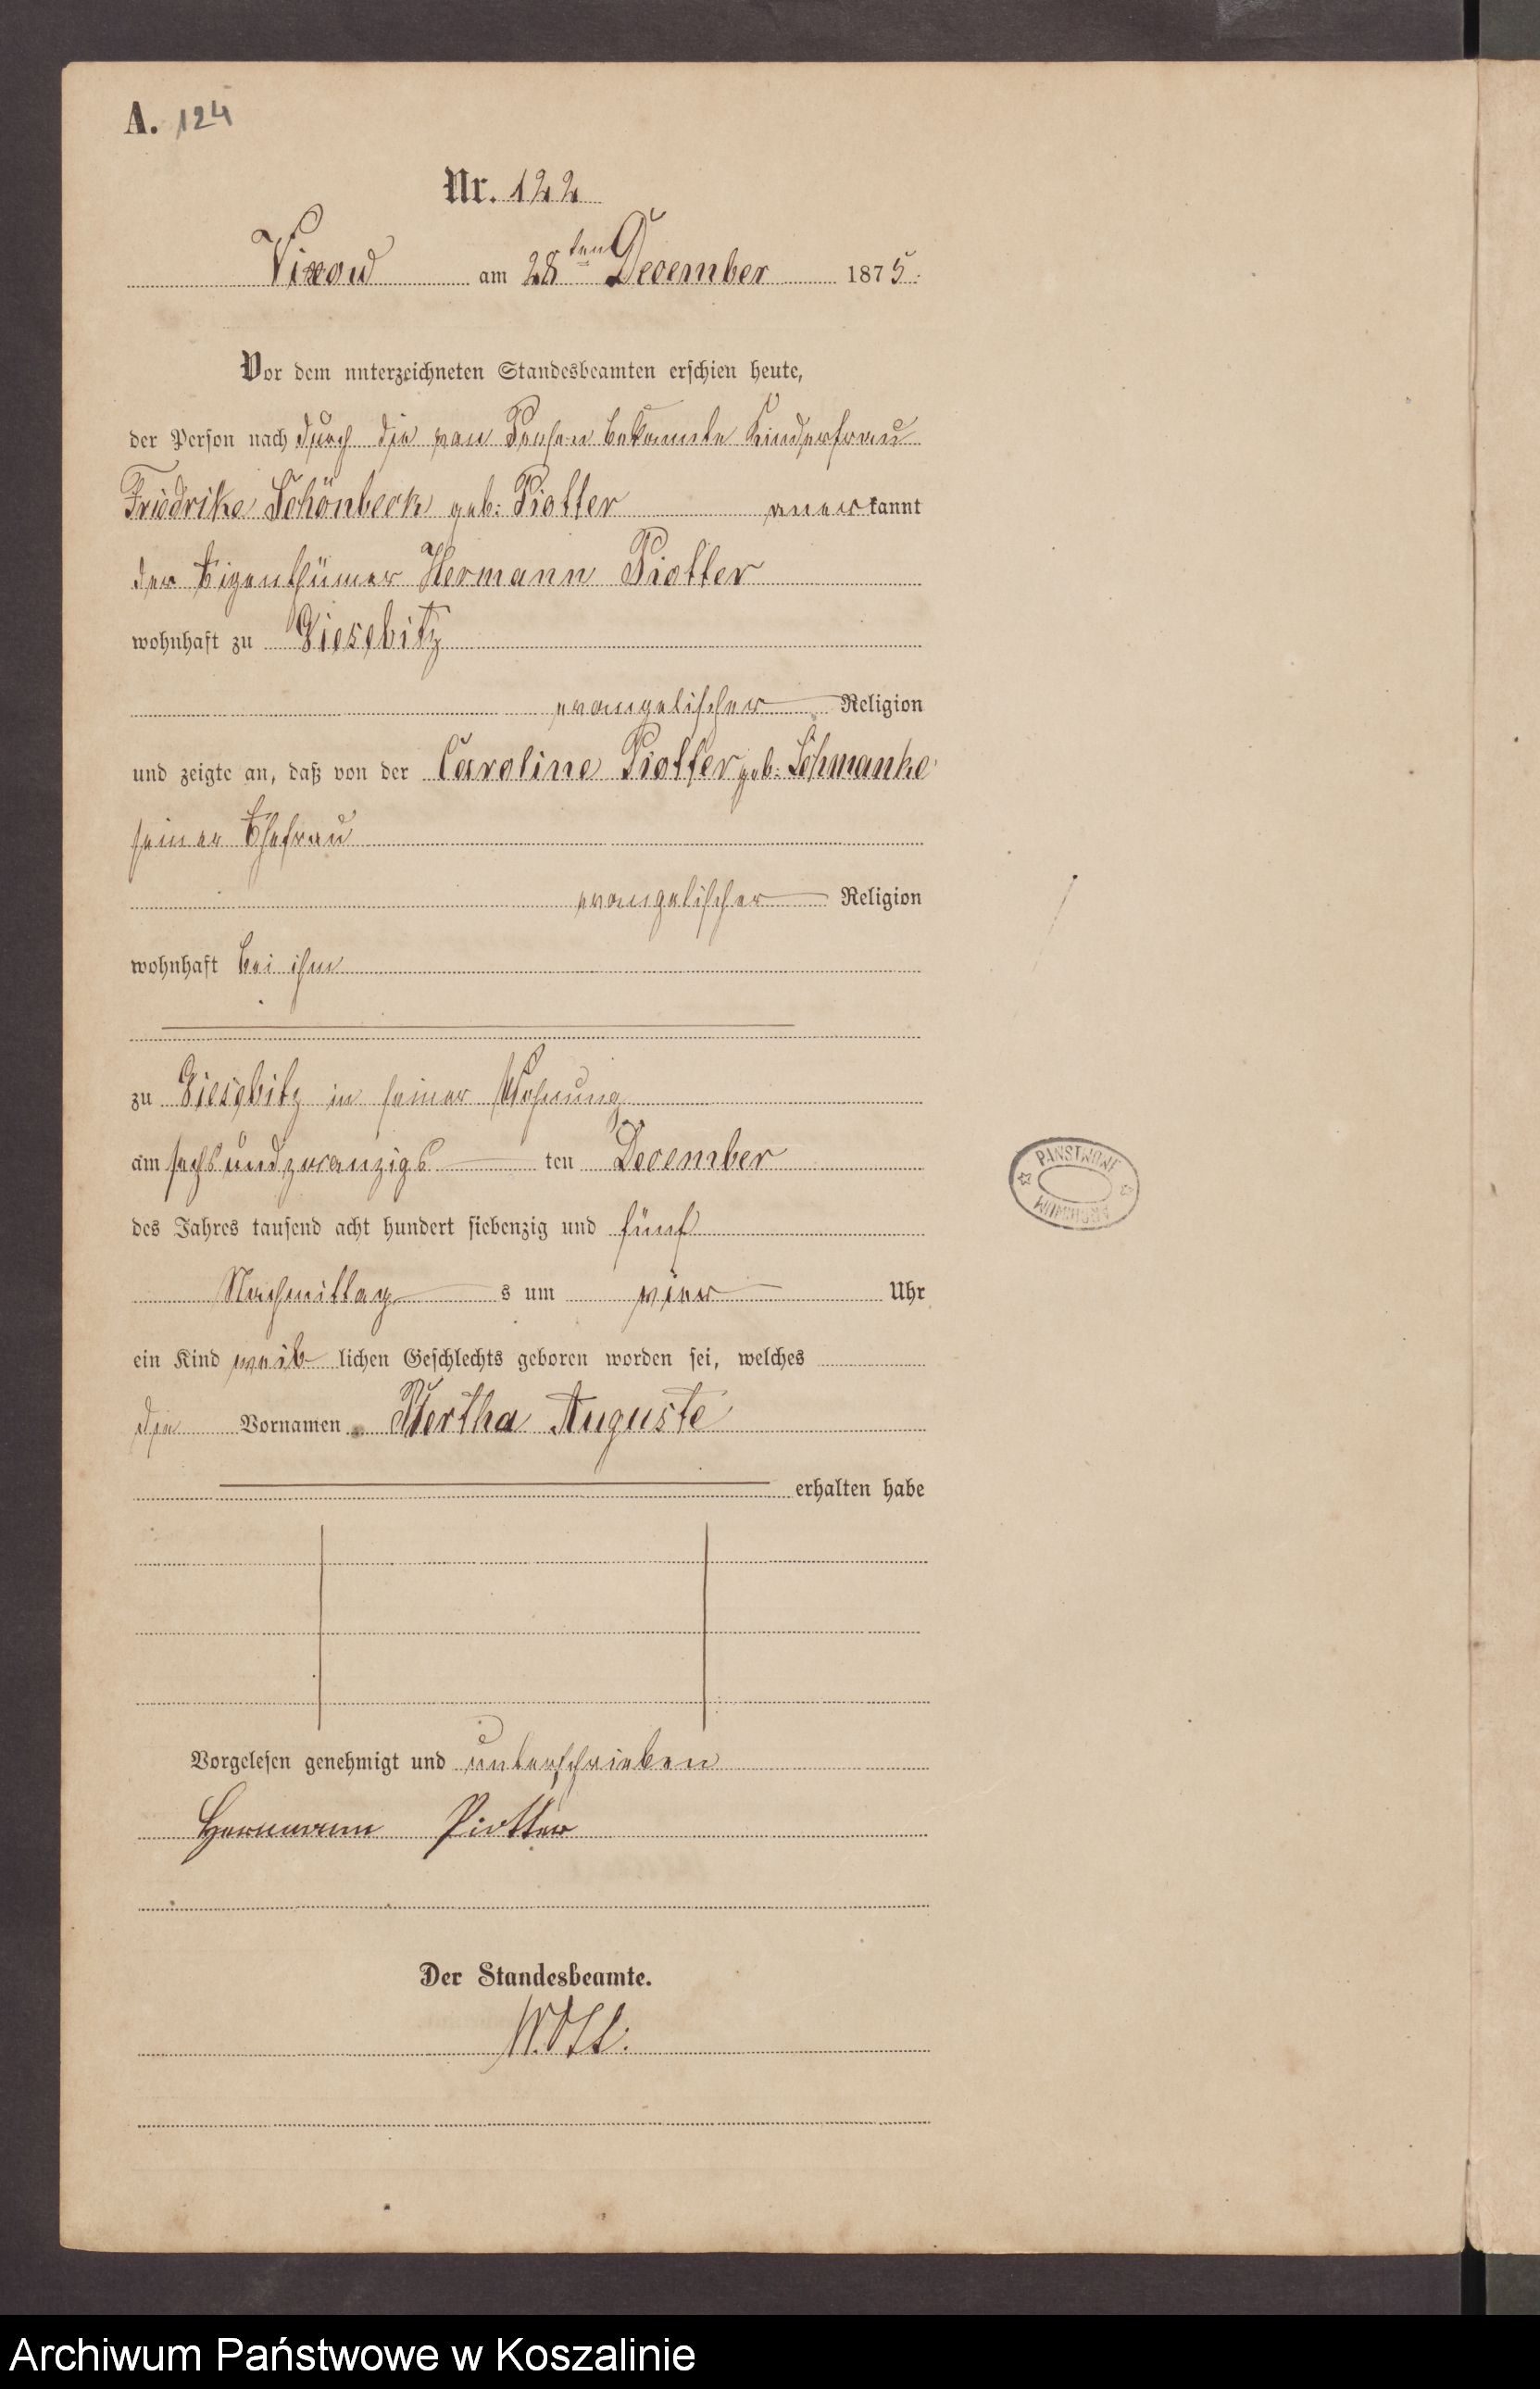 A. 124
Nr. 122
Vixow am 28ten December 1875.
Vor dem unterzeichneten Standesbeamten erschien heute,
der Person nach durch die von Person bekannte Kinderfrau
Friedrike Schönbeck geb: Piotter anerkannt
der Eigenthümer Hermann Piotter
wohnhaft zu Giesebitz
evangelischer Religion
und zeigte an, daß von der Caroline Piotter geb: Schmanke
seiner Ehefrau
evangelischer Religion
wohnhaft bei ihm
zu Giesebitz in seiner Wohnung
am sechsundzwanzigsten December
des Jahres tausend acht hundert siebenzig und fünf
Nachmittags um vier Uhr
ein Kind weiblichen Geschlechts geboren worden sei, welches
die Vornamen Bertha Auguste
erhalten habe
Vorgelesen genehmigt und unterschrieben
Hermann Piotter
Der Standesbeamte.
PAŃSTWOWE
ARCHIWUM
Archiwum Państwowe w Koszalinie